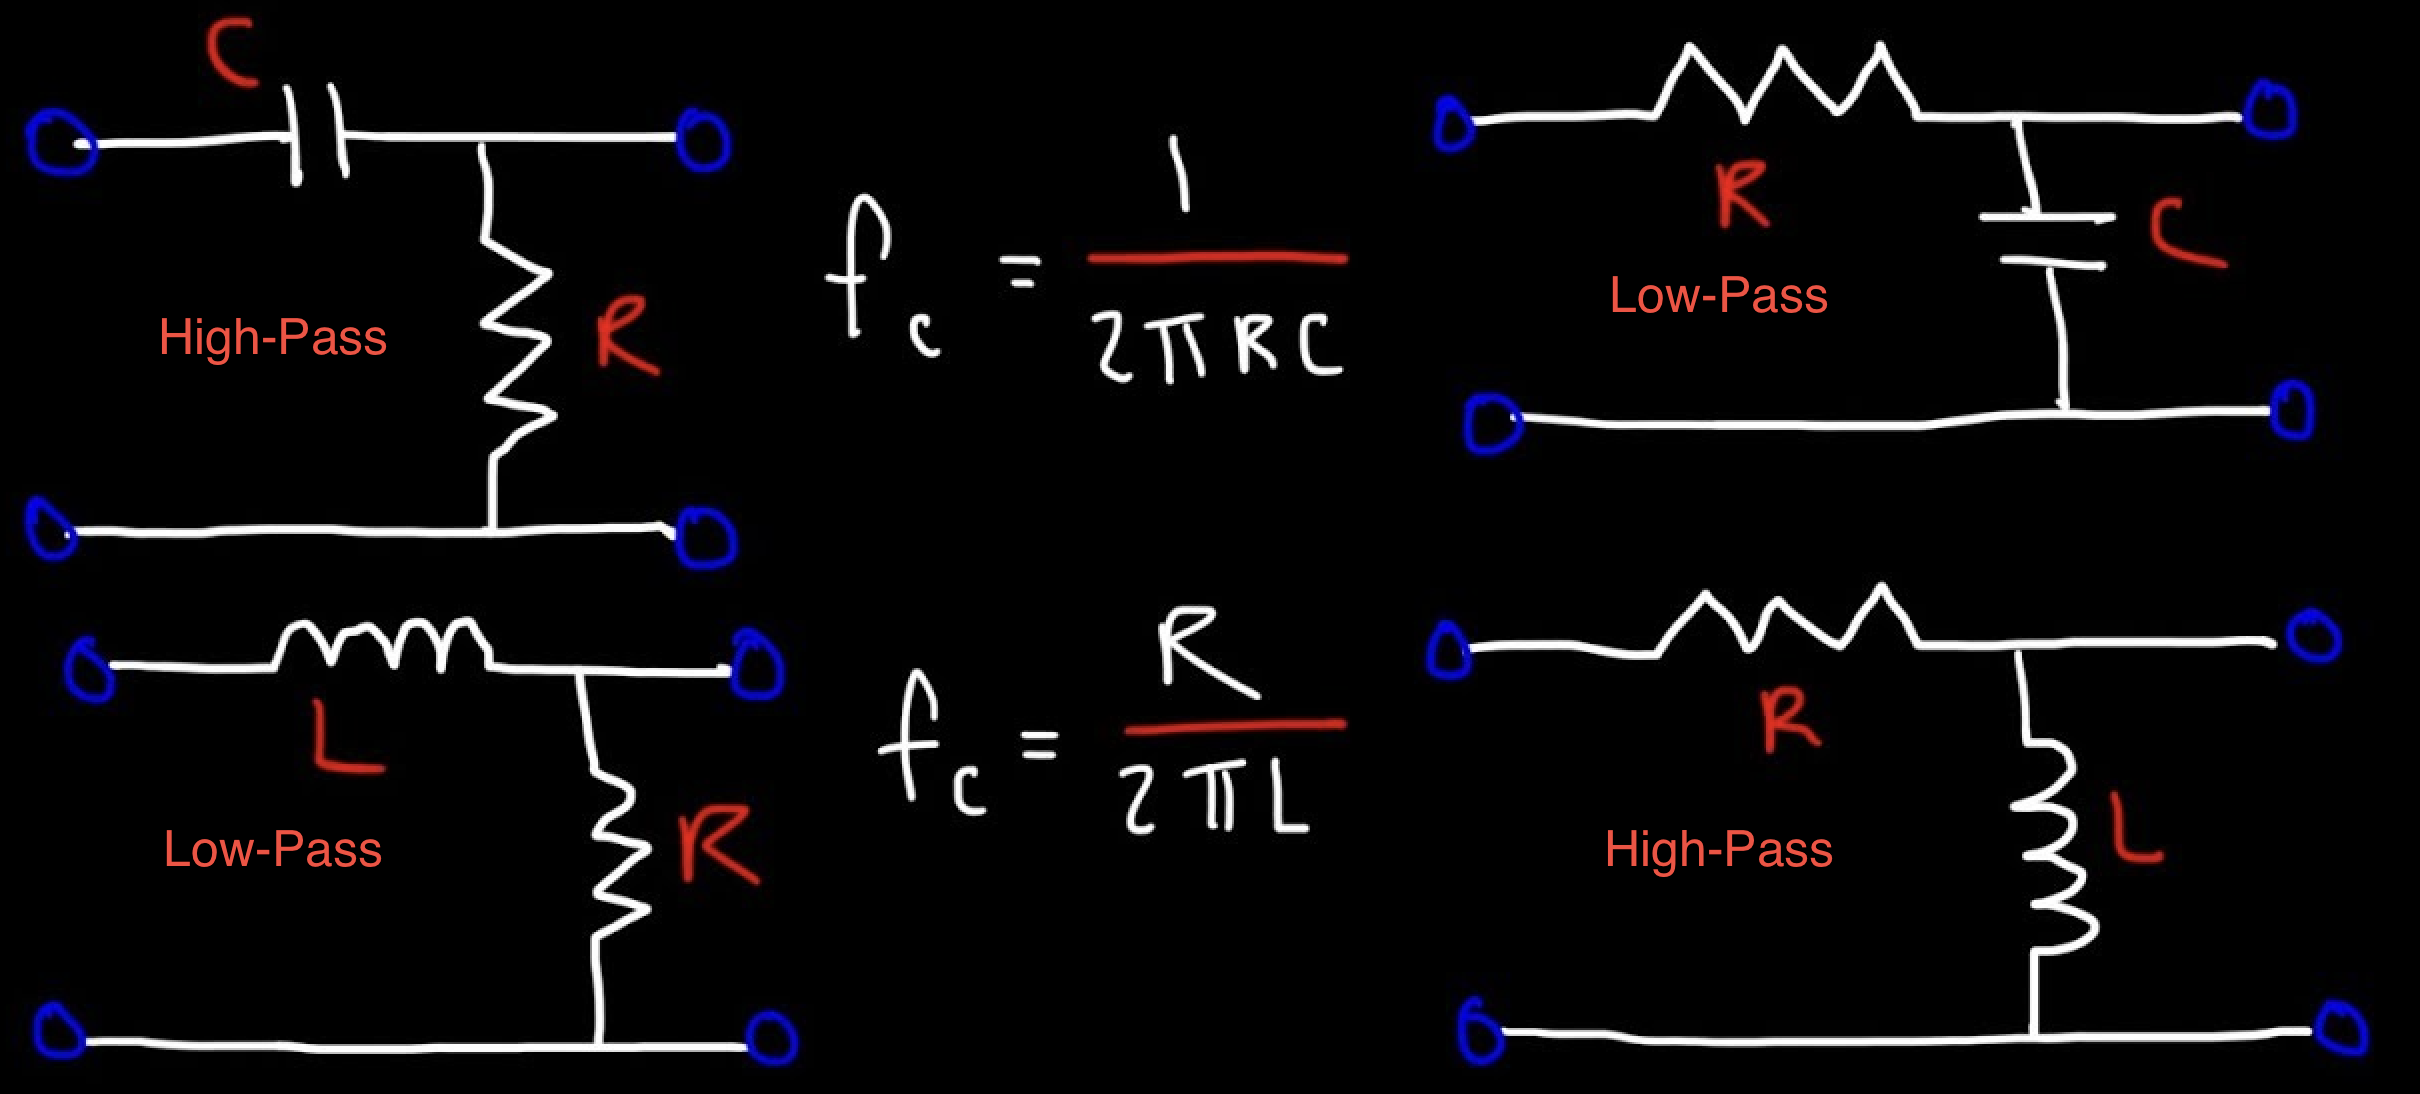 C
High-Pass
R
f_c = 1 / 2πRC
R
C
Low-Pass
L
Low-Pass
R
f_c = R / 2πL
R
High-Pass
L